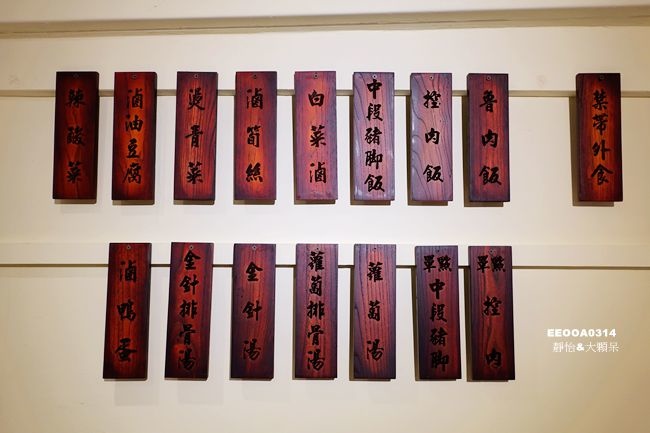 魯肉飯
控肉飯
中段豬脚飯
白菜滷
滷筍絲
燙青菜
滷油豆腐
辣酸菜
禁帶外食
單點 控肉
單點 中段豬脚
蘿蔔湯
蘿蔔排骨湯
金針湯
金針排骨湯
滷鴨蛋
EEOOA0314
靜怡&大顆呆